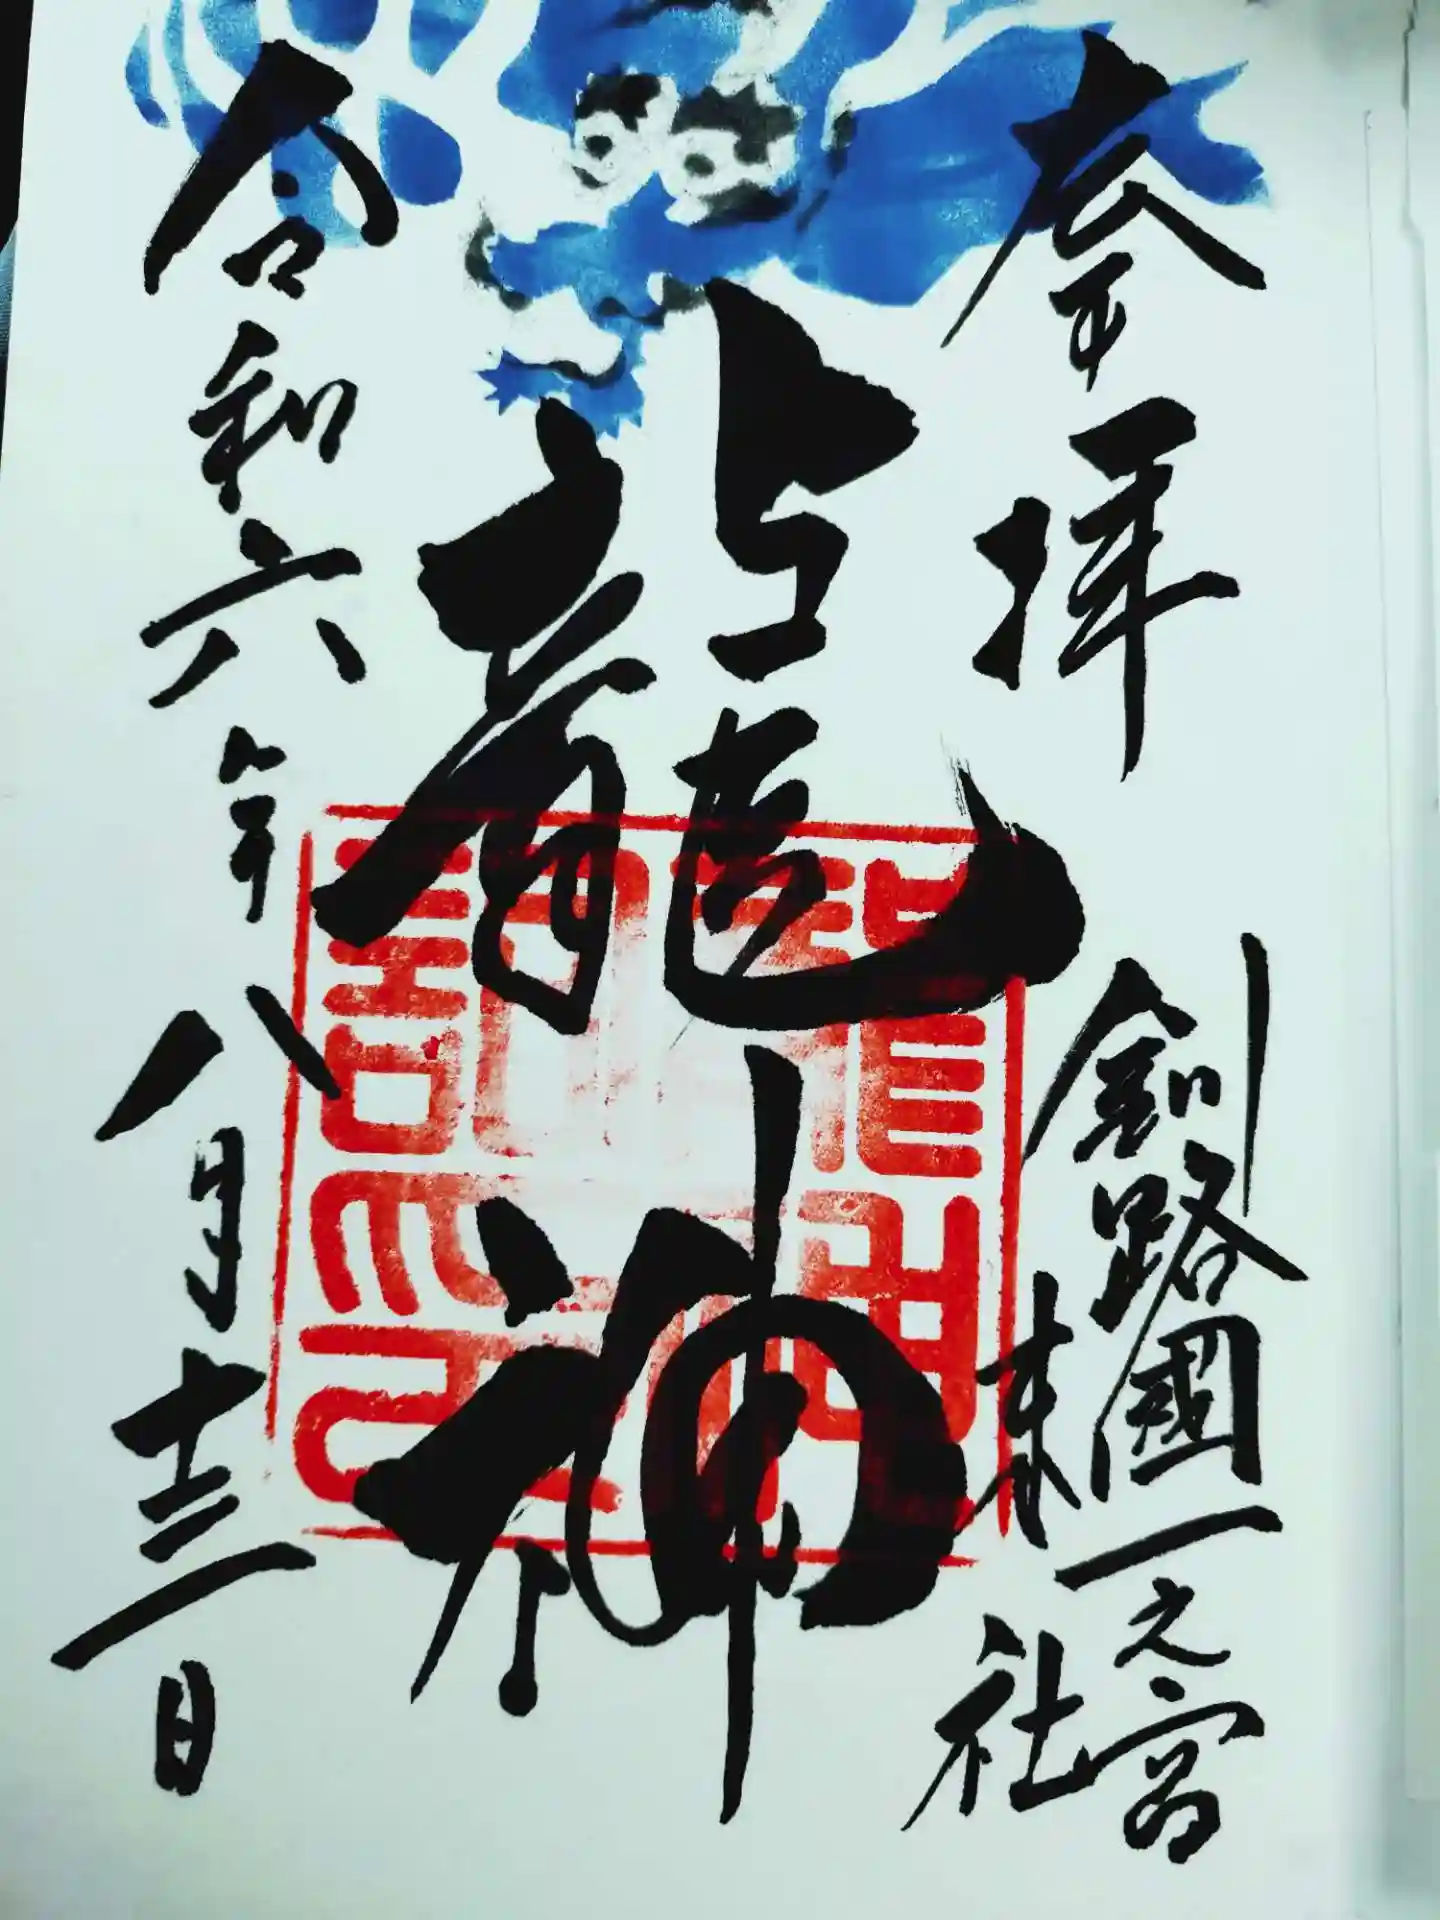 奉拝
釧路國一之宮
末社
龍神
令和六年八月十三日